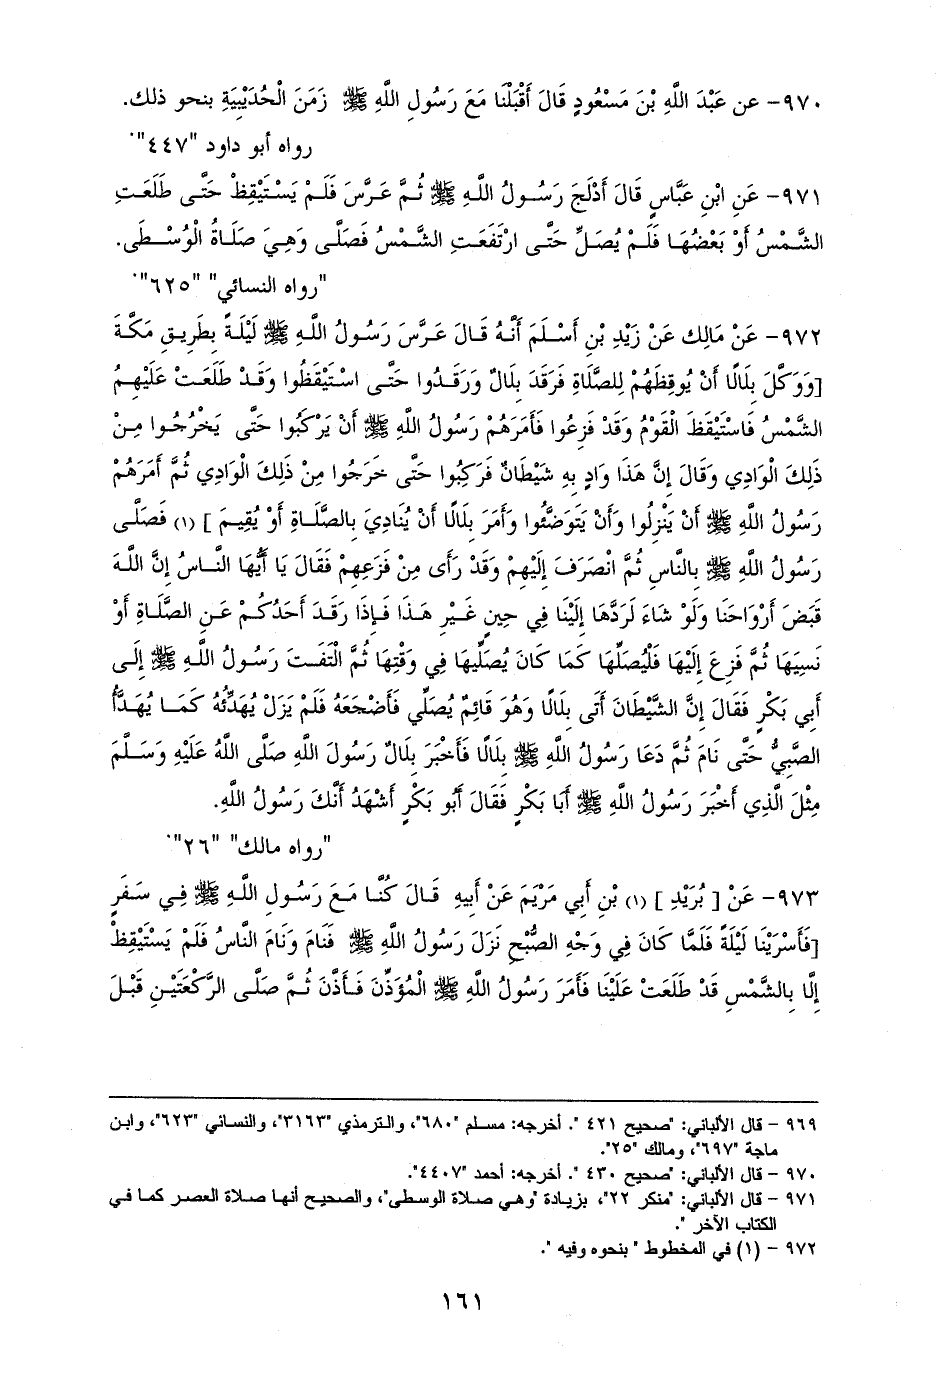 ٩٧٠- عن عَبْدَ اللَّهِ بْنَ مَسْعُودٍ قَالَ أَقْبَلْنَا مَعَ رَسُولِ اللَّهِ ﷺ زَمَنَ الْحُدَيْبِيَةِ بنحو ذلك.
رواه أبو داود "٤٤٧".
٩٧١- عَنِ ابْنِ عَبَّاسٍ قَالَ أَدْلَجَ رَسُولُ اللَّهِ ﷺ ثُمَّ عَرَّسَ فَلَمْ يَسْتَيْقِظْ حَتَّى طَلَعَتِ
الشَّمْسُ أَوْ بَعْضُهَا فَلَمْ يُصَلِّ حَتَّى ارْتَفَعَتِ الشَّمْسُ فَصَلَّى وَهِيَ صَلَاةُ الْوُسْطَى.
"رواه النسائي" "٦٢٥".
٩٧٢- عَنْ مَالِك عَنْ زَيْدِ بْنِ أَسْلَمَ أَنَّهُ قَالَ عَرَّسَ رَسُولُ اللَّهِ ﷺ لَيْلَةً بِطَرِيقِ مَكَّةَ
[وَوَكَّلَ بِلَالًا أَنْ يُوقِظَهُمْ لِلصَّلَاةِ فَرَقَدَ بِلَالٌ وَرَقَدُوا حَتَّى اسْتَيْقَظُوا وَقَدْ طَلَعَتْ عَلَيْهِمُ
الشَّمْسُ فَاسْتَيْقَظَ الْقَوْمُ وَقَدْ فَزِعُوا فَأَمَرَهُمْ رَسُولُ اللَّهِ ﷺ أَنْ يَرْكَبُوا حَتَّى يَخْرُجُوا مِنْ
ذَلِكَ الْوَادِي وَقَالَ إِنَّ هَذَا وَادٍ بِهِ شَيْطَانٌ فَرَكِبُوا حَتَّى خَرَجُوا مِنْ ذَلِكَ الْوَادِي ثُمَّ أَمَرَهُمْ
رَسُولُ اللَّهِ ﷺ أَنْ يَنْزِلُوا وَأَنْ يَتَوَضَّئُوا وَأَمَرَ بِلَالًا أَنْ يُنَادِيَ بِالصَّلَاةِ أَوْ يُقِيمَ ] (١) فَصَلَّى
رَسُولُ اللَّهِ ﷺ بِالنَّاسِ ثُمَّ انْصَرَفَ إِلَيْهِمْ وَقَدْ رَأَى مِنْ فَزَعِهِمْ فَقَالَ يَا أَيُّهَا النَّاسُ إِنَّ اللَّهَ
قَبَضَ أَرْوَاحَنَا وَلَوْ شَاءَ لَرَدَّهَا إِلَيْنَا فِي حِينٍ غَيْرِ هَذَا فَإِذَا رَقَدَ أَحَدُكُمْ عَنِ الصَّلَاةِ أَوْ
نَسِيَهَا ثُمَّ فَزِعَ إِلَيْهَا فَلْيُصَلِّهَا كَمَا كَانَ يُصَلِّيهَا فِي وَقْتِهَا ثُمَّ الْتَفَتَ رَسُولُ اللَّهِ ﷺ إِلَى
أَبِي بَكْرٍ فَقَالَ إِنَّ الشَّيْطَانَ أَتَى بِلَالًا وَهُوَ قَائِمٌ يُصَلِّي فَأَضْجَعَهُ فَلَمْ يَزَلْ يُهَدِّئُهُ كَمَا يُهَدَّأُ
الصَّبِيُّ حَتَّى نَامَ ثُمَّ دَعَا رَسُولُ اللَّهِ ﷺ بِلَالًا فَأَخْبَرَ بِلَالٌ رَسُولَ اللَّهِ صَلَّى اللَّهُ عَلَيْهِ وَسَلَّمَ
مِثْلَ الَّذِي أَخْبَرَ رَسُولُ اللَّهِ ﷺ أَبَا بَكْرٍ فَقَالَ أَبُو بَكْرٍ أَشْهَدُ أَنَّكَ رَسُولُ اللَّهِ.
"رواه مالك" "٢٦".
٩٧٣- عَنْ [ بُرَيْدِ ] (١) بْنِ أَبِي مَرْيَمَ عَنْ أَبِيهِ قَالَ كُنَّا مَعَ رَسُولِ اللَّهِ ﷺ فِي سَفَرٍ
[فَأَسْرَيْنَا لَيْلَةً فَلَمَّا كَانَ فِي وَجْهِ الصُّبْحِ نَزَلَ رَسُولُ اللَّهِ ﷺ فَنَامَ وَنَامَ النَّاسُ فَلَمْ يَسْتَيْقِظْ
إِلَّا بِالشَّمْسِ قَدْ طَلَعَتْ عَلَيْنَا فَأَمَرَ رَسُولُ اللَّهِ ﷺ الْمُؤَذِّنَ فَأَذَّنَ ثُمَّ صَلَّى الرَّكْعَتَيْنِ قَبْلَ
٩٦٩ - قال الألباني: "صحيح ٤٢١ ". أخرجه: مسلم "٦٨٠"، والترمذي "٣١٦٣"، والنسائي "٦٢٣"، وابن
ماجة "٦٩٧"، ومالك "٢٥".
٩٧٠ - قال الألباني: "صحيح ٤٣٠ ". أخرجه: أحمد "٤٤٠٧".
٩٧١ - قال الألباني: "منكر ٢٢"، بزيادة "وهي صلاة الوسطى"، والصحيح أنها صلاة العصر كما في
الكتاب الآخر ".
٩٧٢ - (١) في المخطوط " بنحوه وفيه ".
١٦١